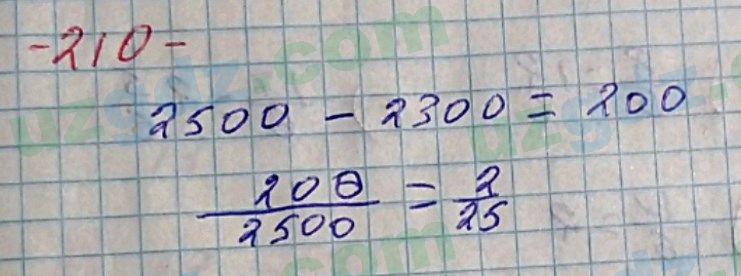 -210-
2500 - 2300 = 200
200/2500 = 2/25
uzgdz.com